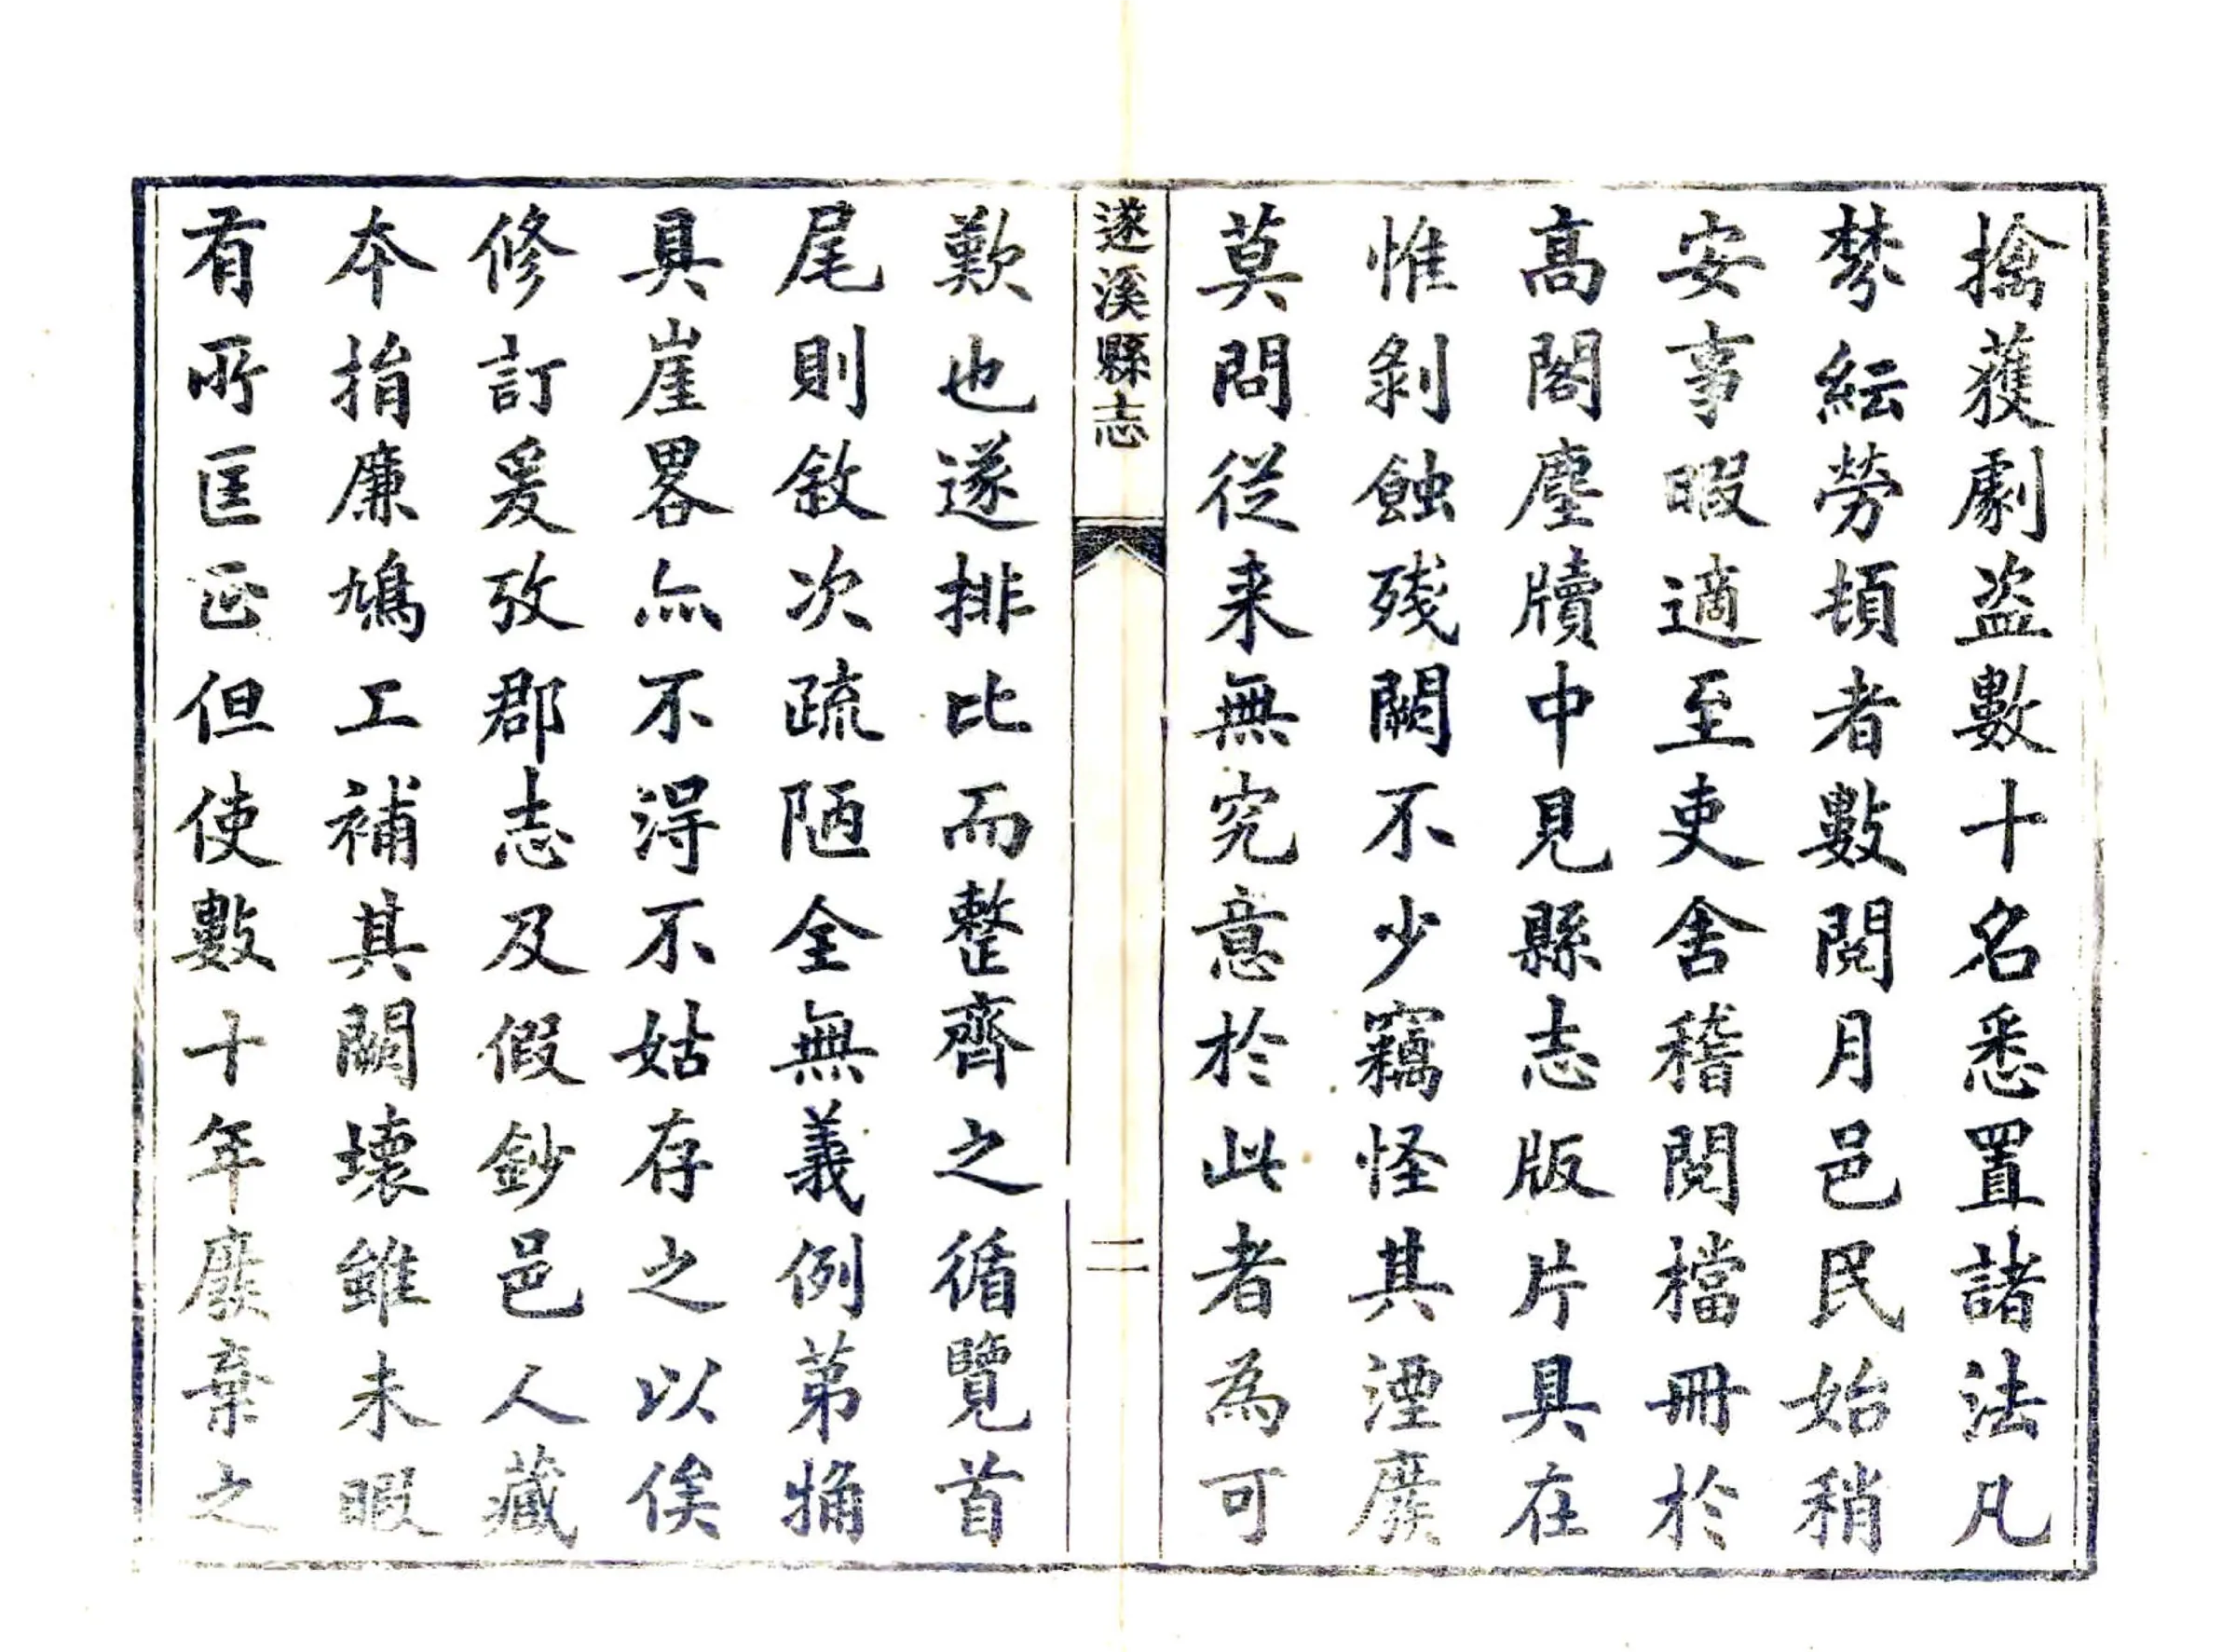 擒獲劇盜數十名悉置諸法凡
棼紜勞頓者數閱月邑民始稍
安事暇適至吏舍稽閱檔冊於
高閣塵牘中見縣志版片具在
惟剝蝕殘闕不少竊怪其湮廢
莫問從来無究意於此者為可
遂溪縣志
二
歎也遂排比而整齊之循覽首
尾則敘次疏陋全無義例第觕
具崖畧亦不得不姑存之以俟
修訂爰攷郡志及假鈔邑人藏
本捐廉鳩工補其闕壞雖未暇
有所匡正但使數十年廢棄之